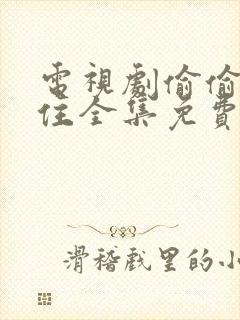 電視劇偷偷
住全集免費
滑稽戲里的小